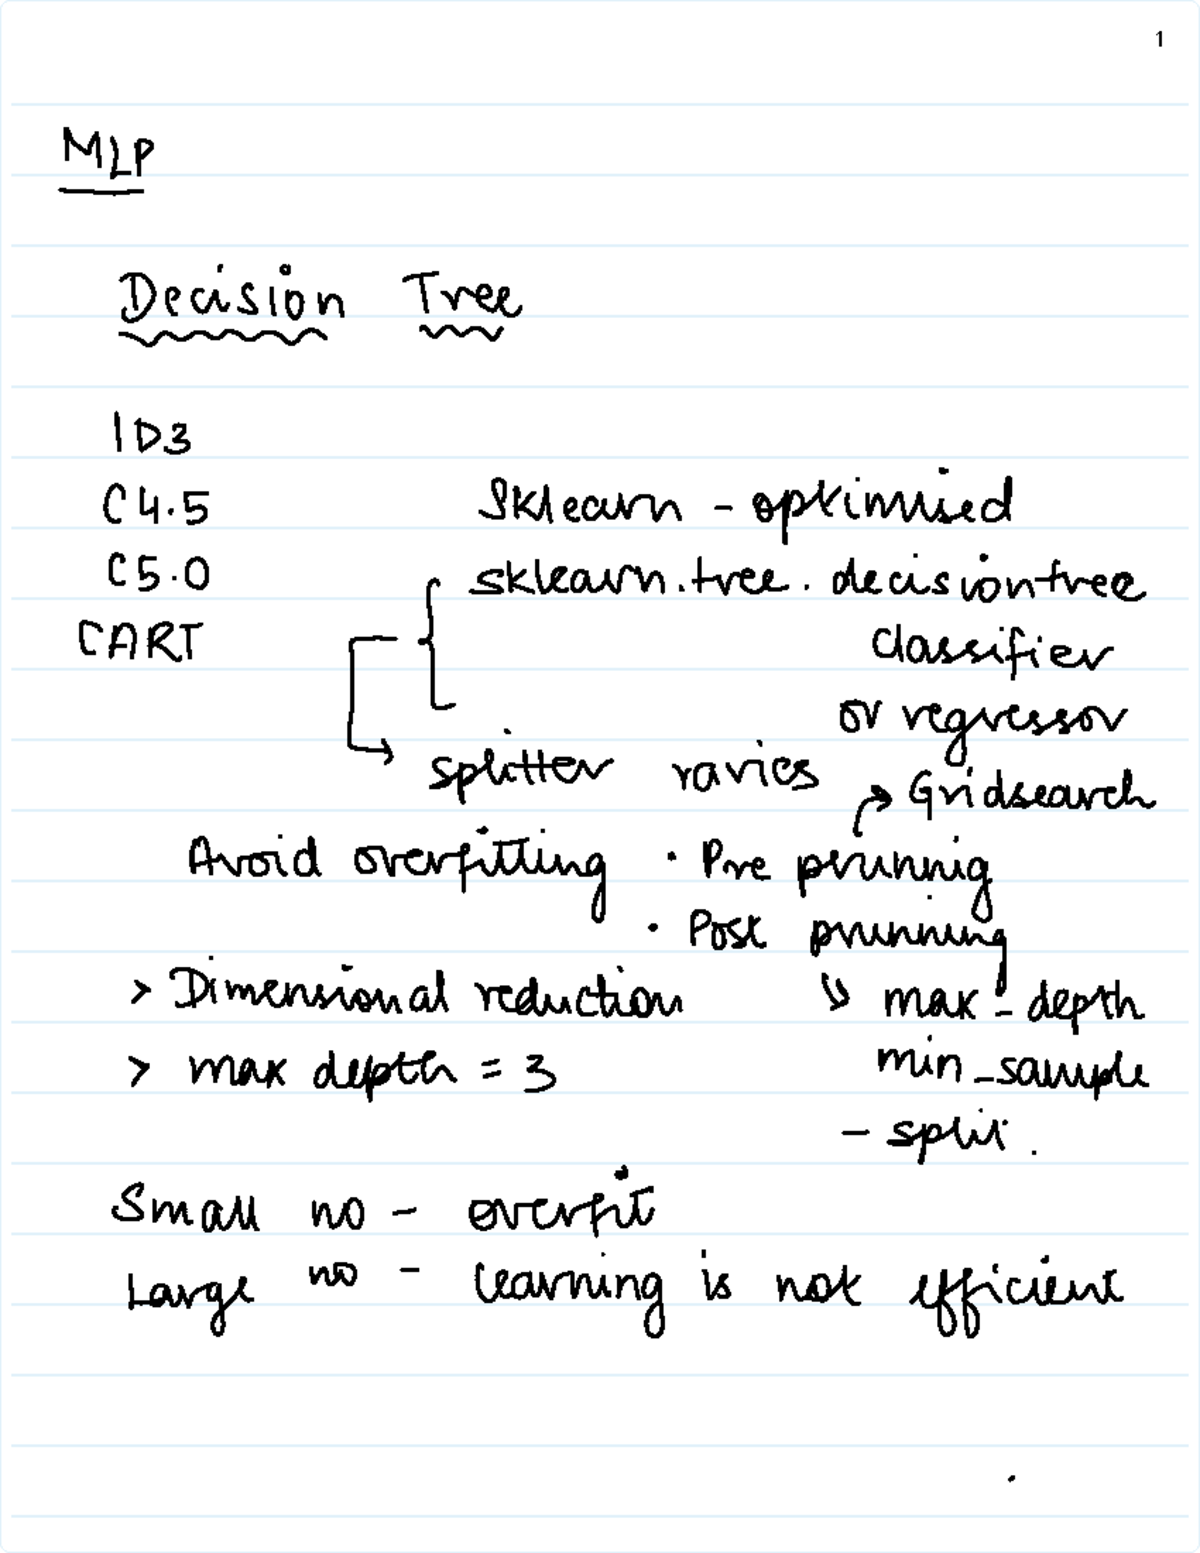 1
MLP
Decision Tree
ID3
C4.5
C5.0
CART
Sklearn - optimised
sklearn.tree.decisiontree
classifier
or regressor
splitter varies
→ Gridsearch
Avoid overfitting • Pre prunning
• Post prunning
> Dimensional reduction
> max depth = 3
↳ max_depth
min_sample
- split.
Small no - overfit
Large no - learning is not efficient